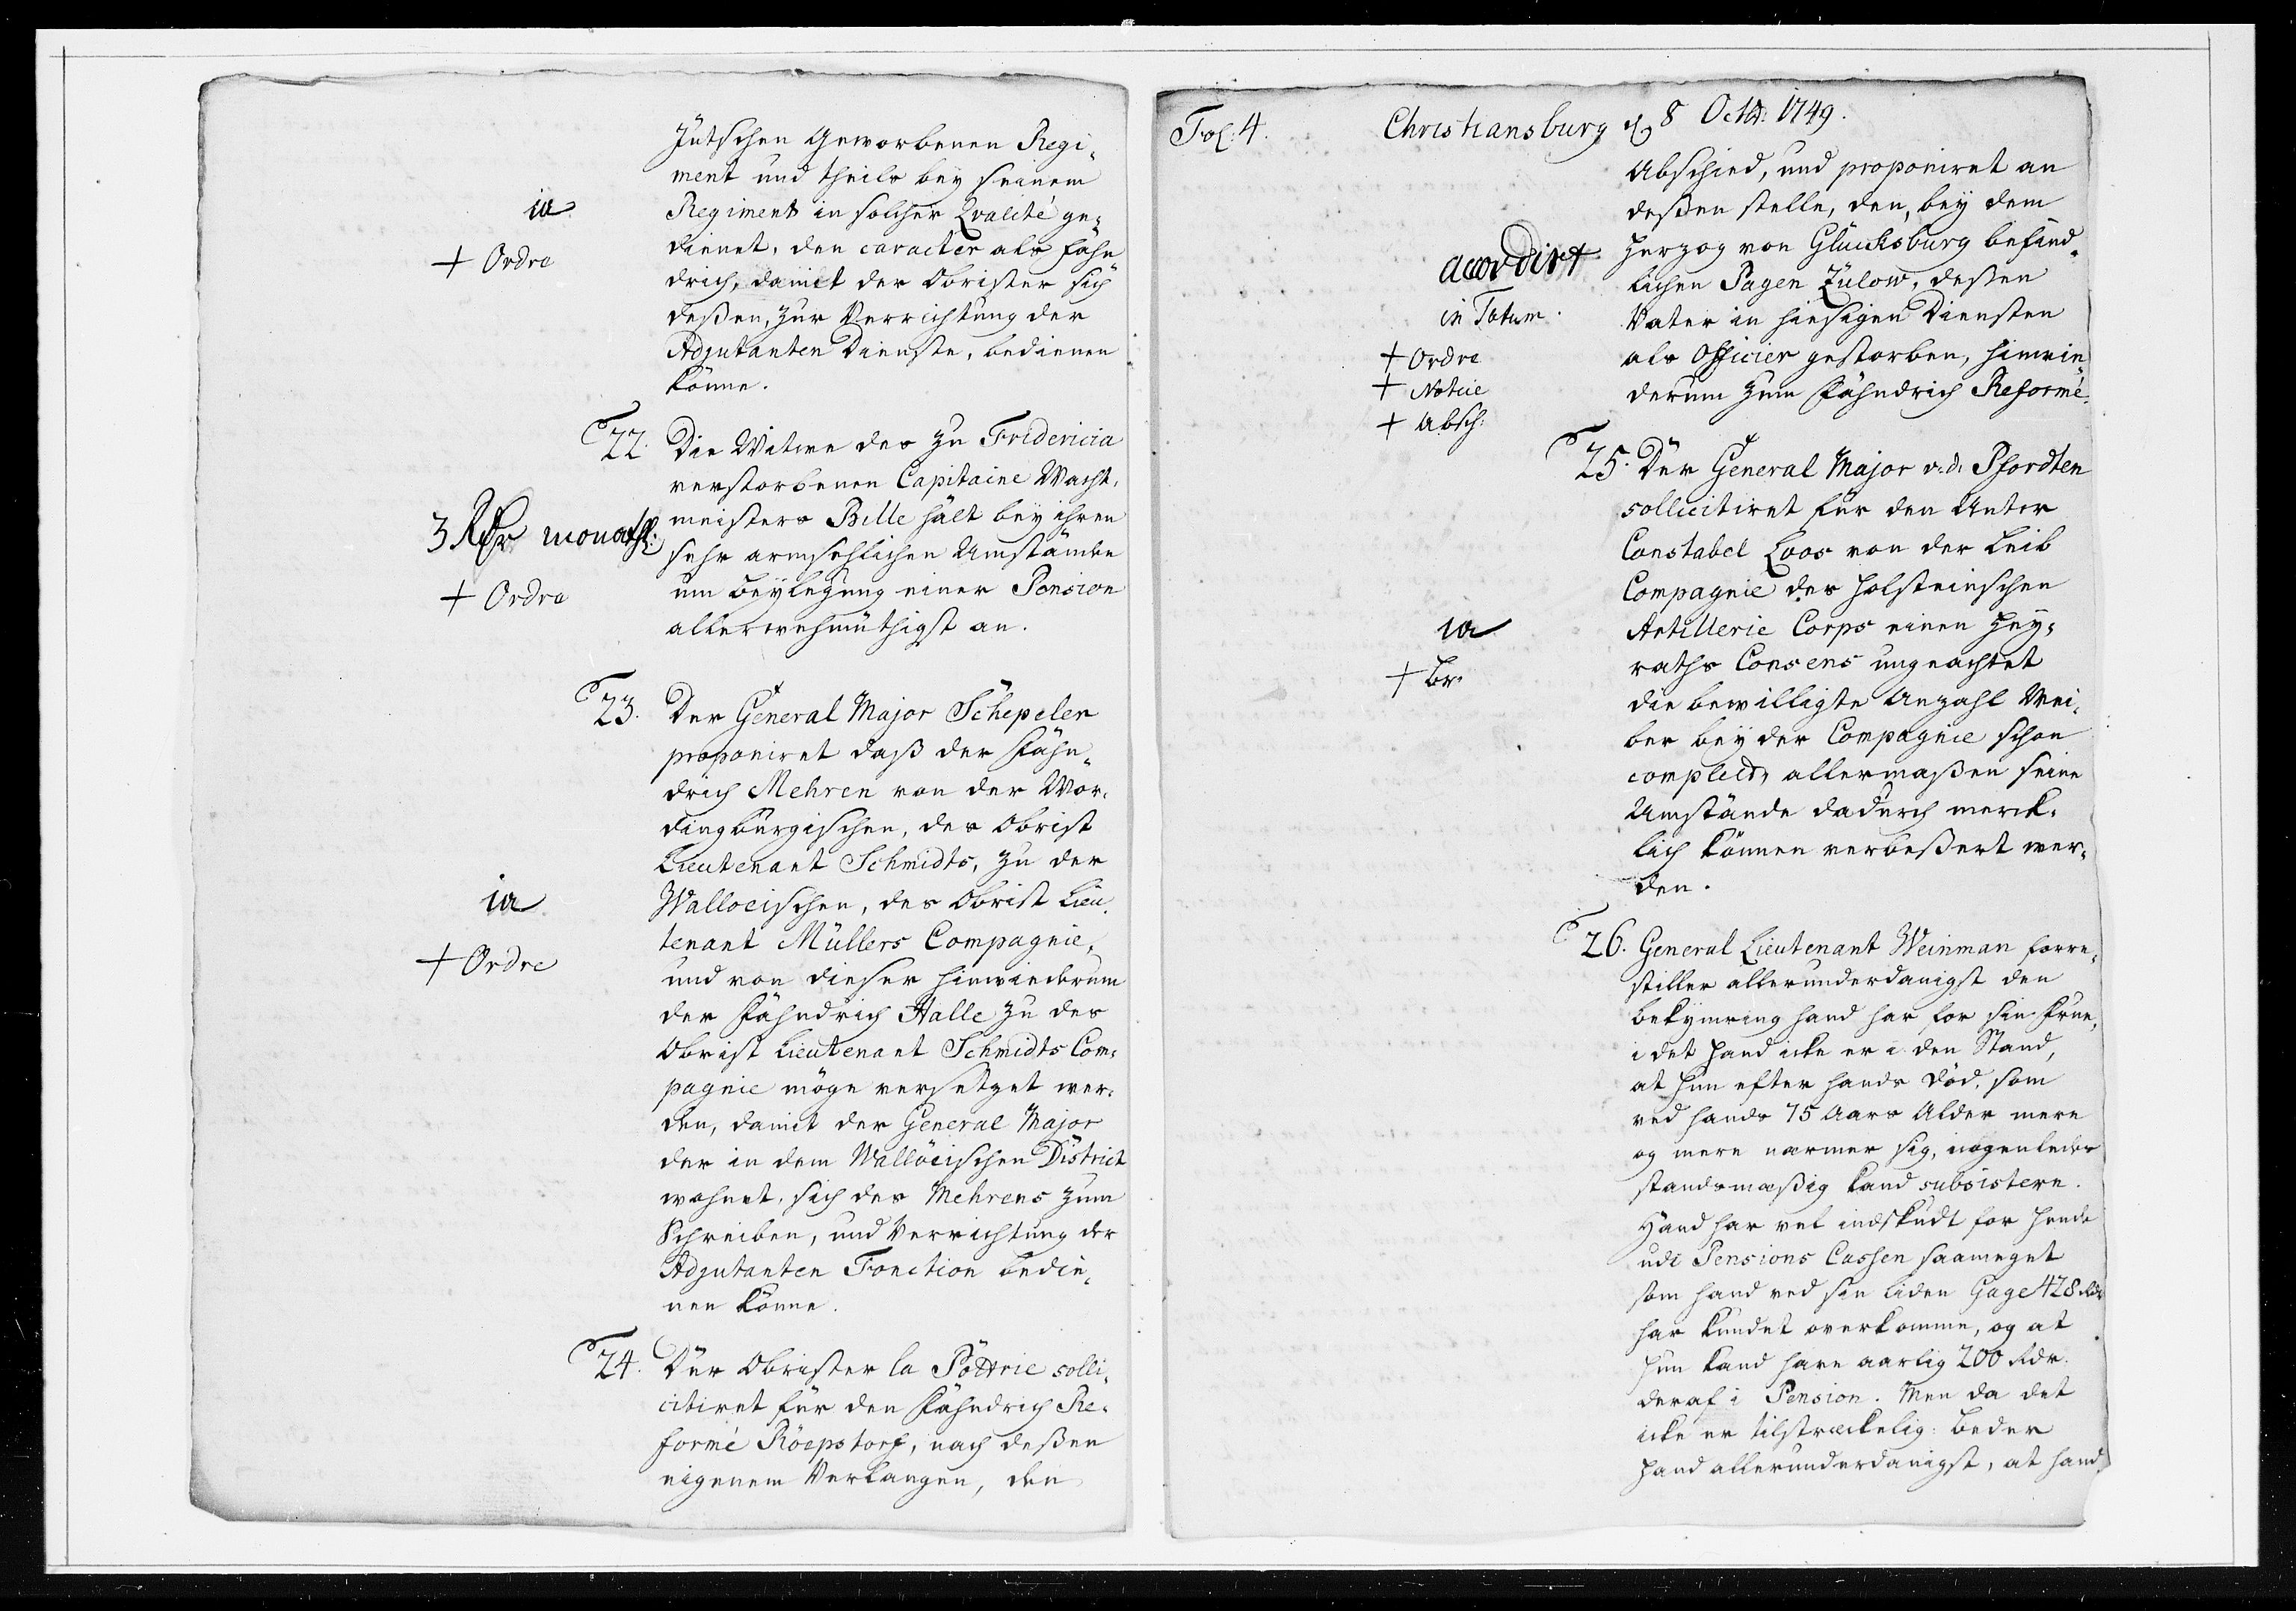 Jütschen Geworbenen Regi-
ment und theils bey seinem
ia
Regiment in solcher Qvalité ge-
dienet, den caracter als Fähn-
+ Ordre
drich, damit der Obrister sich
deßen, zur Verrichtung der
Adjutanten Dienste, bedienen
könne.
22. Die Witwe des zu Fridericia
verstorbenen Capitaine Wacht-
meisters Bille hält bey ihren
3 Rdr monathl:
sehr armsehlichen Umstände
+ Ordre
um Beylegung einer Pension
allerwehmüthigst an.
23. Der General Major Schepeler
proponiret daß der Fähn-
drich Mehren von der Wor-
dingburgischen, des Obrist
Lieutenant Schmidts, zu der
ia
Walloeischen, des Obrist Lieu-
tenant Müllers Compagnie,
+ Ordre
und von dieser hinwiederum
der Fähndrich Halle zu des
Obrist Lieutenant Schmidts Com-
pagnie möge versetzet wer-
den, damit der General Major
der in dem Wallöeischen District
wohnet, sich des Mehrens zum
Schreiben, und Verrichtung der
Adjutanten Fonction bedie-
nen könne.
24. Der Obrister la Pöttrie solli-
citiret für den Fähndrich Re-
formé Röepstorf, nach deßen
eigenem Verlangen, den
Fol: 4. Christiansburg d 8 Octbr: 1749.
Abschied, und proponiret an
deßen stelle, den, bey dem
Herzog von Glucksburg befind-
accordirt
lichen Pagen Zülow, deßen
in Totum.
Vater in hiesigen Diensten
+ Ordre
als Officier gestorben, hinwie-
+ Notice
derum zum Fähndrich Reformé.
+ Absch:
25. Der General Major v. d. Pfordten
sollicitiret für den Unter
Constabel Loos von der Leib
Compagnie des Holsteinschen
ia
Artillerie Corps einen Hey-
+ Br.
raths Consens ungeachtet
die bewilligte Anzahl Wei-
ber bey der Compagnie schon
complett, allermaßen seine
Umstände dadurch merck-
lich können verbeßert wer-
den.
26. General Lieutenant Weinman forre-
stiller allerunderdanigst den
bekymring hand har for sin Frue,
i det hand icke er i den Stand,
at hun efter hands Död, som
ved hands 75 Aars Alder mere
og mere nærmer sig, nogenledes
standsmæßig kand subsistere.
Hand har vel indskudt for hende
udi Pensions Cassen saameget
som hand ved sin liden Gage 428 Rdr
har kundet overkomme, og at
hun kand have aarlig 200 Rdr.
deraf i Pension. Men da det
icke er tilstreckelig: beder
hand allerunderdanigst, at hand